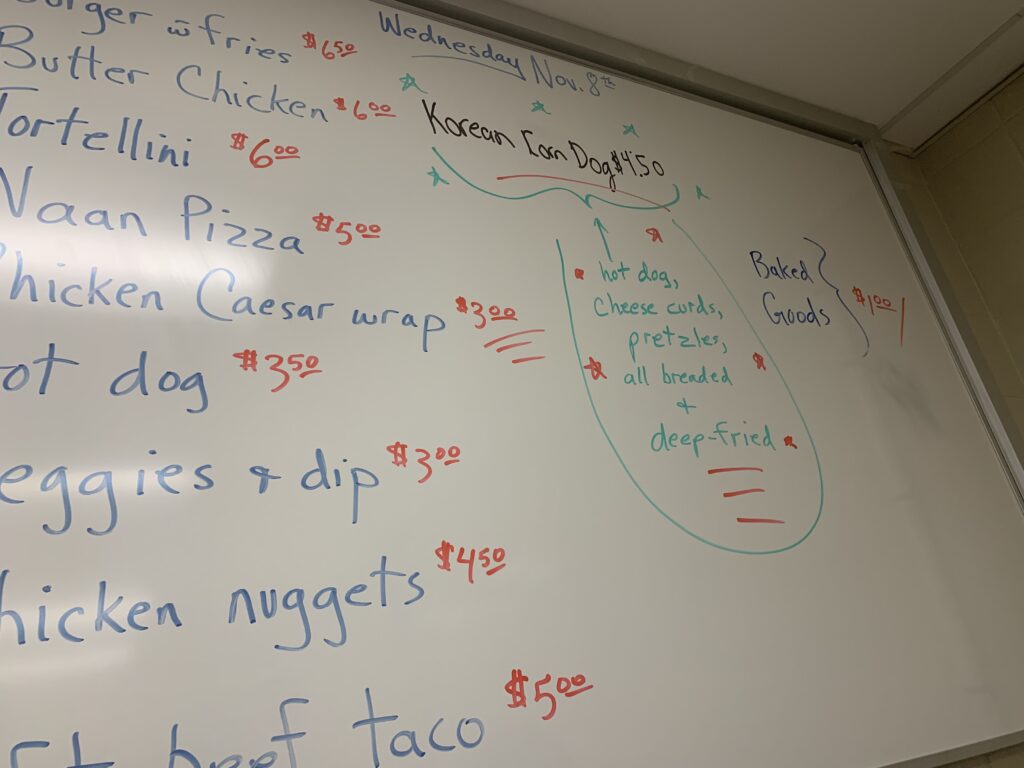 urger w̄ fries $6.50
Butter Chicken $6.00
Tortellini $6.00
Naan Pizza $5.00
hicken Caesar wrap $3.00
ot dog $3.50
eggies & dip $3.00
hicken nuggets $4.50
ft beef taco $5.00
Wednesday Nov. 8th
Korean Corn Dog $4.50
hot dog,
Cheese curds,
pretzles,
all breaded
&
deep-fried
Baked
Goods
$1.00